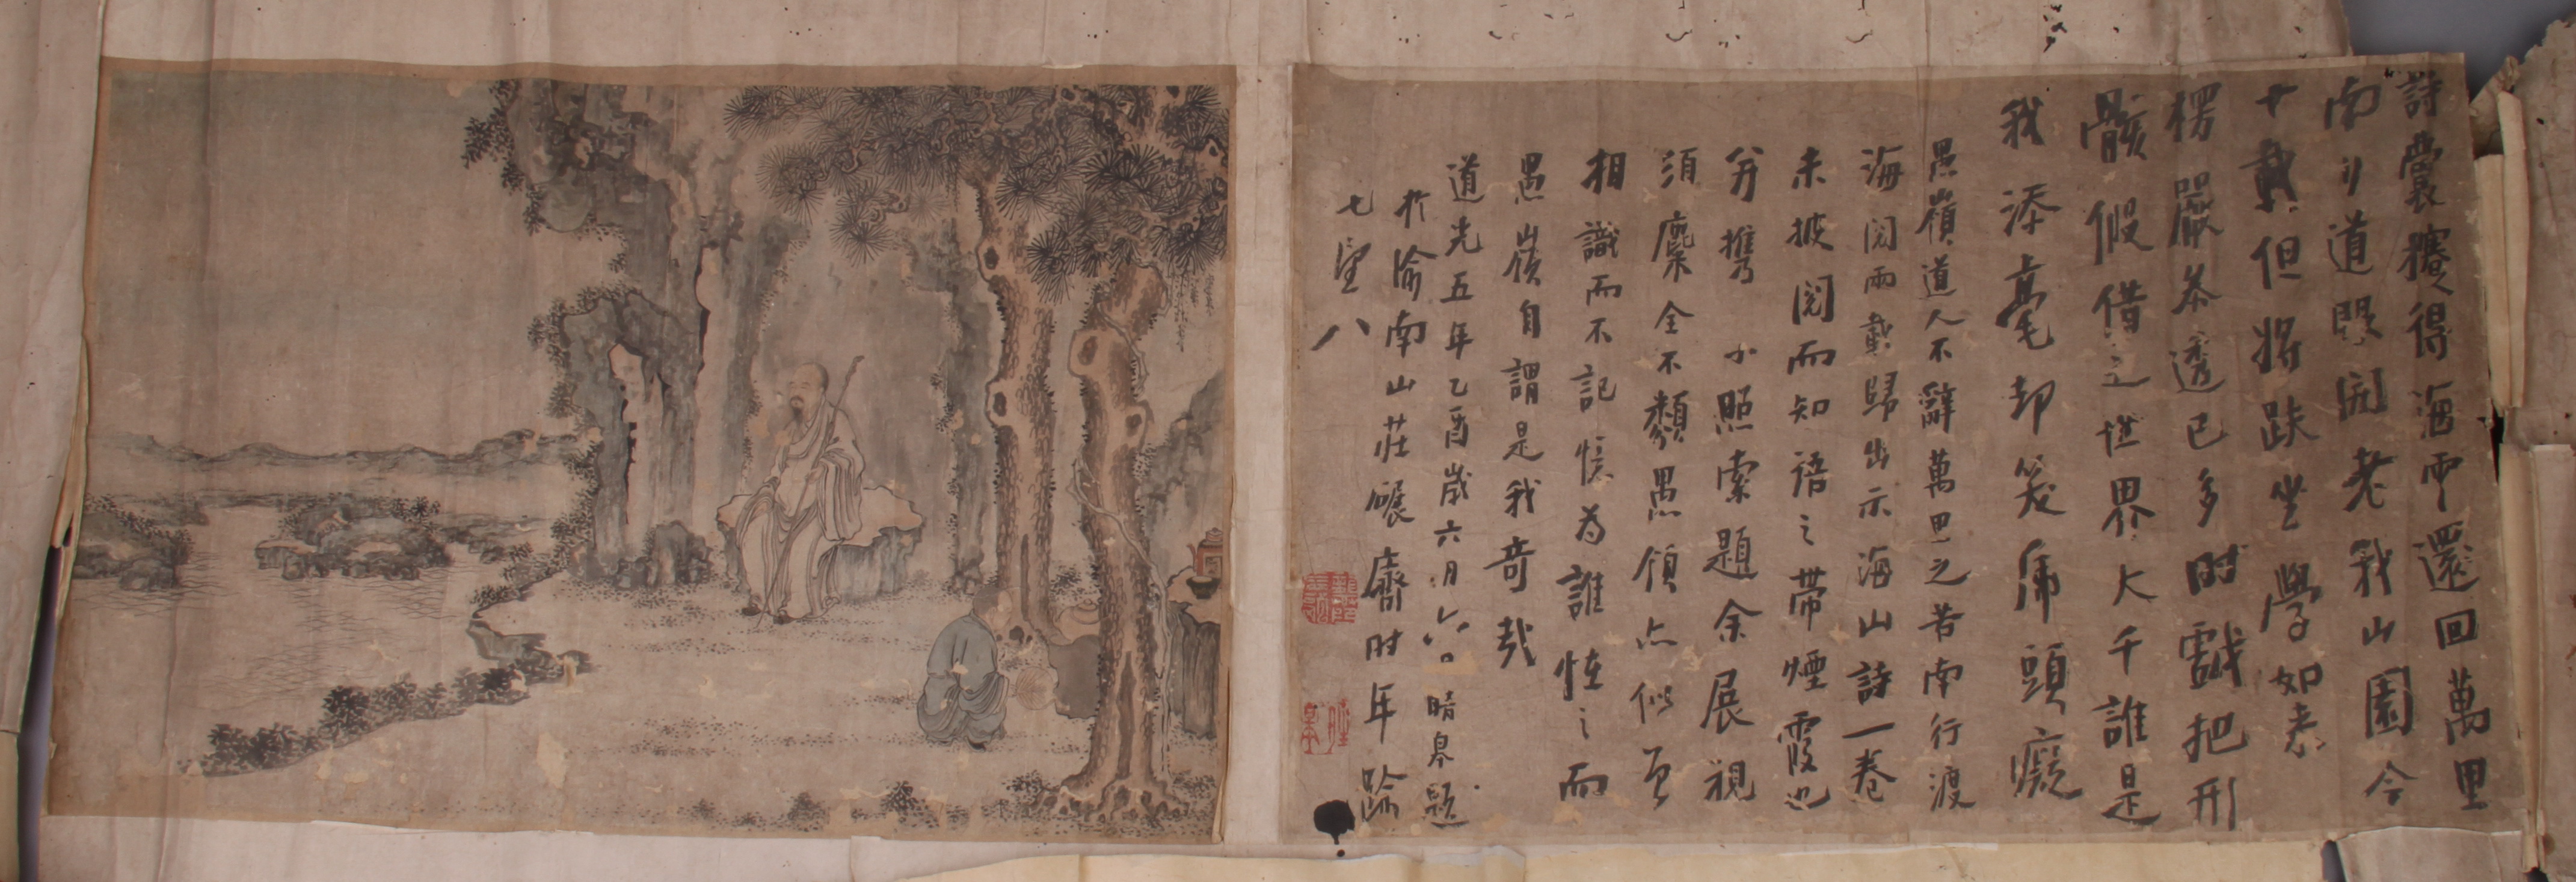 詩囊攜得海雲還回萬里
南行道眼開老我山園今
廿載但將趺坐學如來
楞嚴叅透已多時戲把形
骸假借之世界大千誰是
我添毫却笑虎頭癡
愚嶺道人不辭萬里之苦南行渡
海閱兩載歸出示海山詩一卷
未披閱而知語之帶煙霞也
并携小照索題余展視
須麋全不類愚領点似曾
相識而不記憶為誰怪之而
愚嶺自謂是我奇哉
道光五年乙酉歲六月六日晴皋題
於渝南山莊碾齋时年踰
七望八